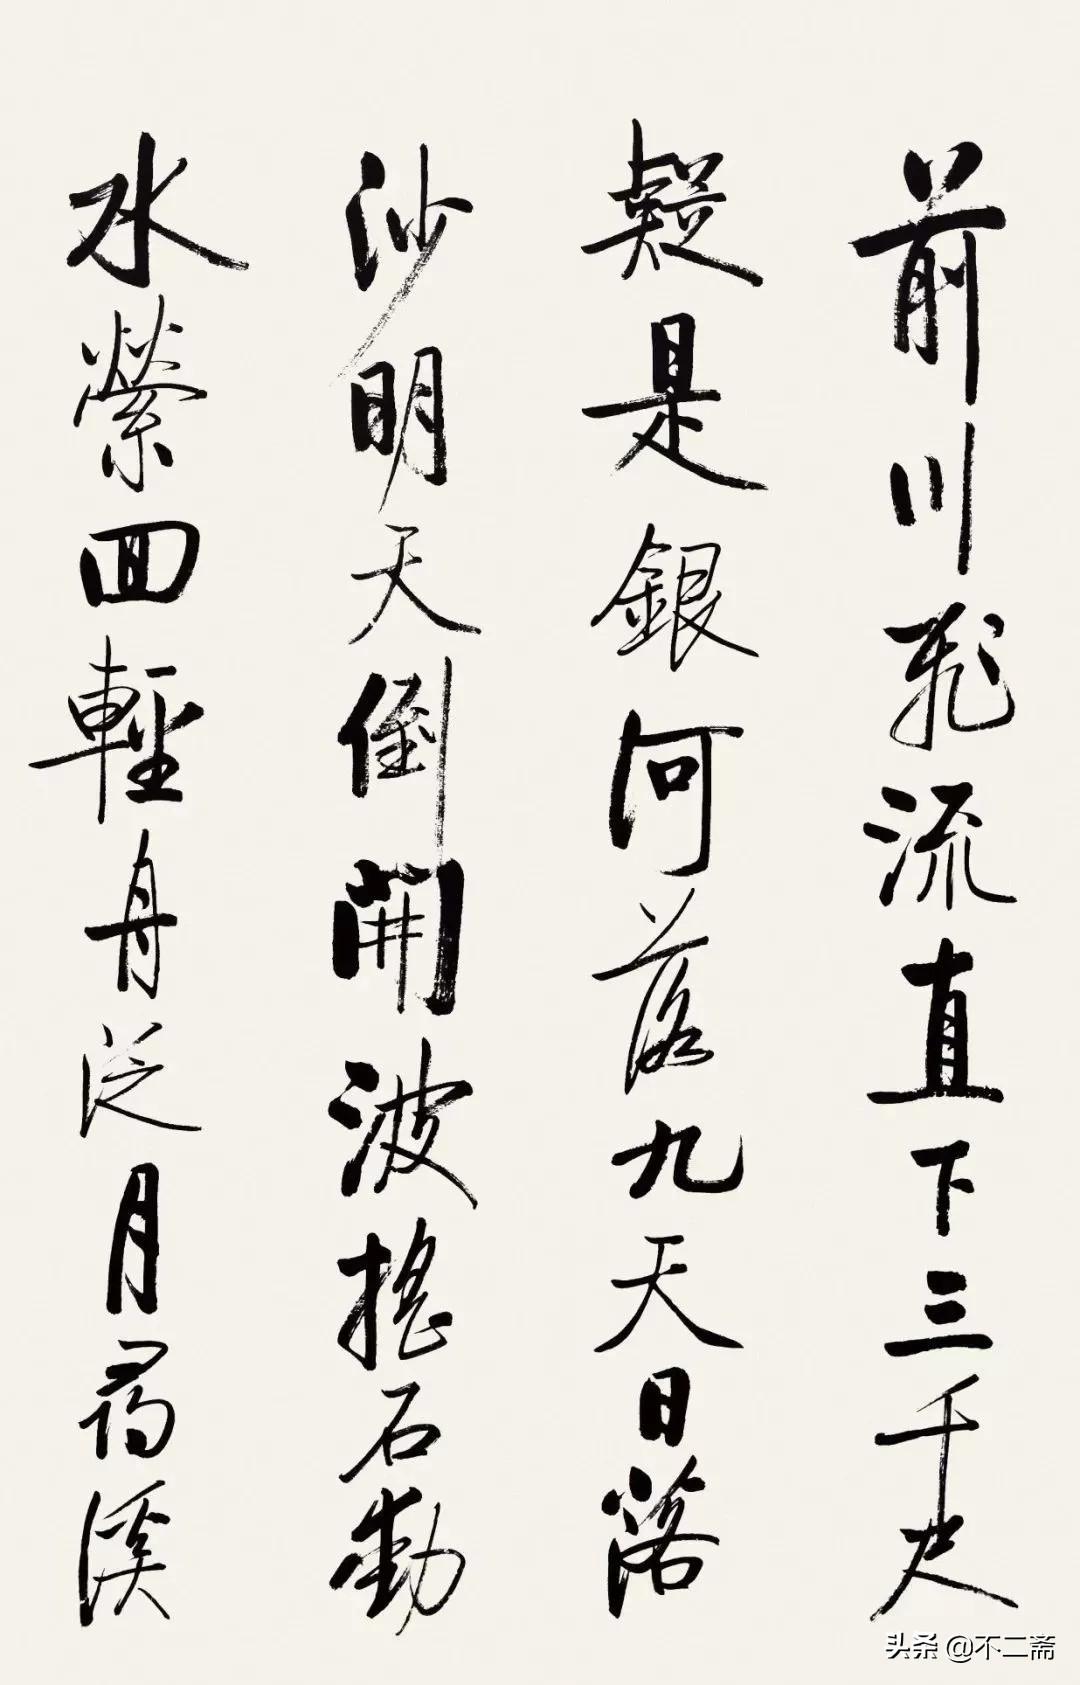 前川飛流直下三千尺
疑是銀河落九天日落
沙明天倒開波搖石動
水縈回輕舟泛月尋溪
头条 @不二斋